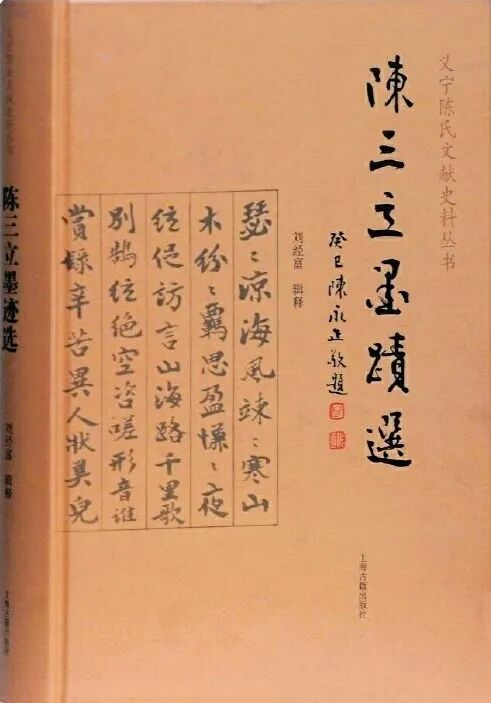 义宁陈氏文献史料丛书
陳三立墨蹟選
癸巳陳永正敬題
刘经富 辑释
上海古籍出版社
瑟〻凉海風竦〻寒山
木紛〻羈思盈慊〻夜
絃促訪言山海路千里歌
別鵠絃絶空咨嗟形音誰
賞録辛苦異人狀美皃
义宁陈氏文献史料丛书
陈三立墨迹选
刘经富 辑释
上海古籍出版社